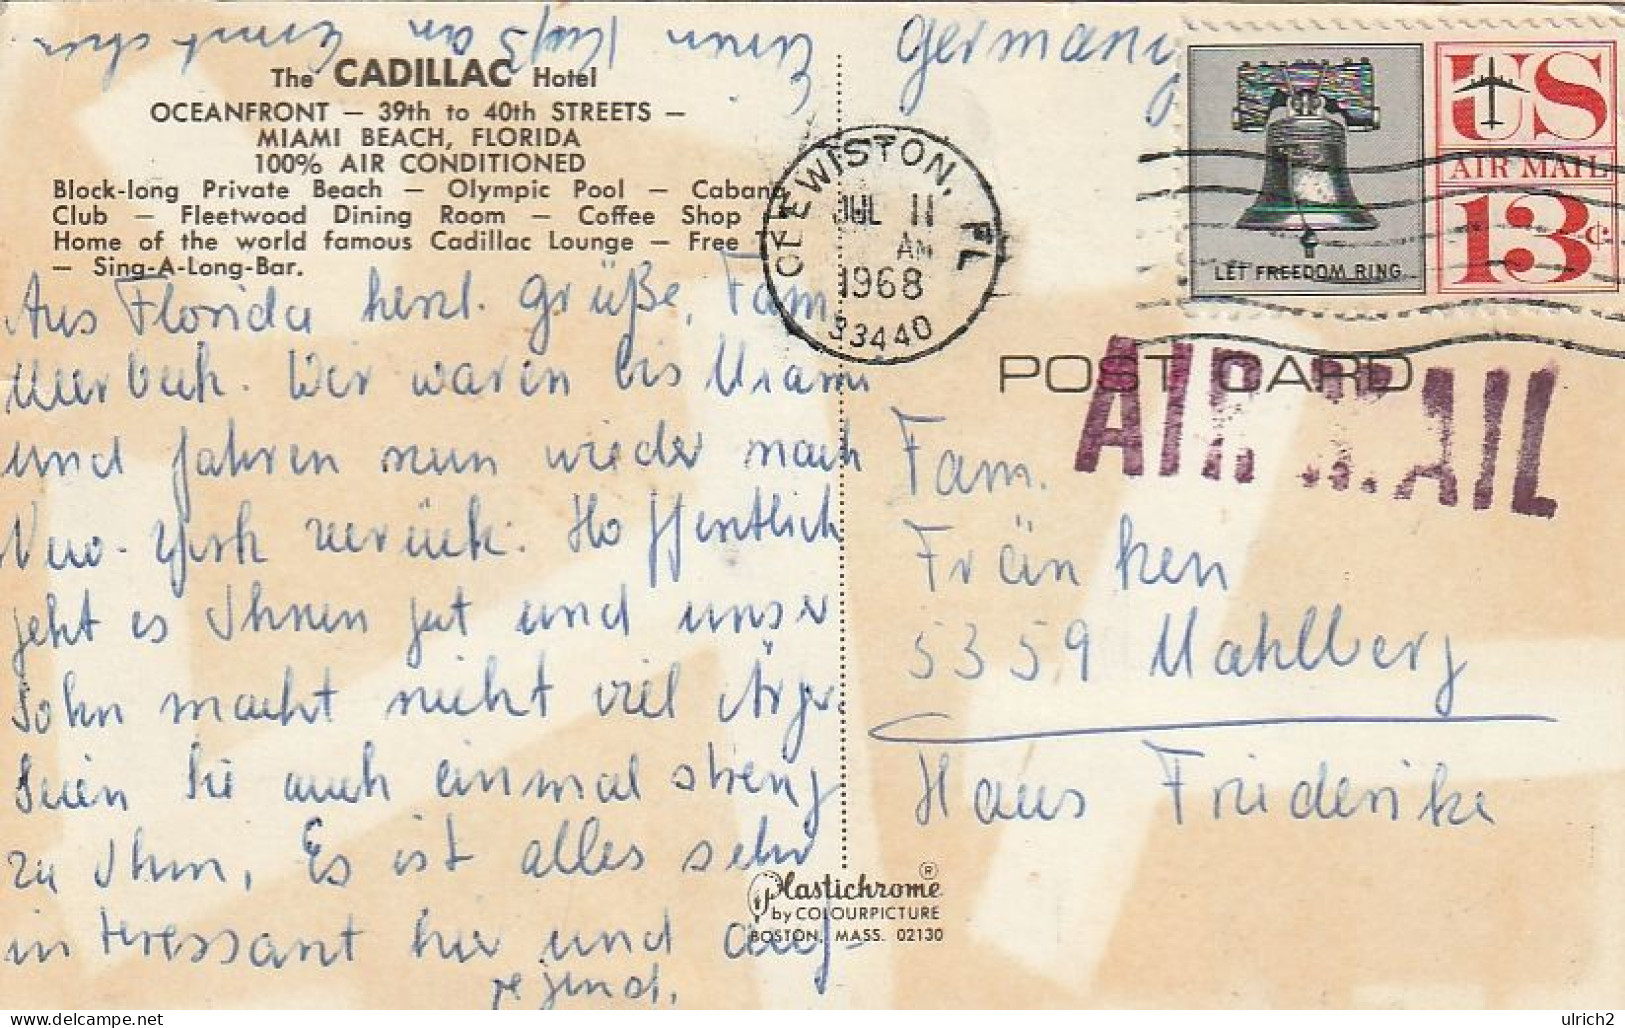 Germany
Einen Kuß an Ernstchen
The CADILLAC Hotel
OCEANFRONT — 39th to 40th STREETS —
MIAMI BEACH, FLORIDA
100% AIR CONDITIONED
Block-long Private Beach — Olympic Pool — Cabana
Club — Fleetwood Dining Room — Coffee Shop
Home of the world famous Cadillac Lounge — Free
— Sing-A-Long-Bar.
Aus Florida herzl. Grüße, Fam.
Wir waren bis Miami
und fahren nun wieder nach
New-York zurück. Hoffentlich
geht es Ihnen gut und unser
Sohn macht nicht viel Ärger.
Seien Sie auch einmal streng
zu Ihm. Es ist alles sehr
interessant hier und auf-
regend.
CLEWISTON, FL
JUL 11
AM
1968
33440
US
AIR MAIL
13¢
LET FREEDOM RING
POST CARD
AIR MAIL
Fam.
Fränken
5359 Mahlberg
Haus Friederike
Plastichrome ®
by COLOURPICTURE
BOSTON, MASS. 02130
delcampe.net
ulrich2